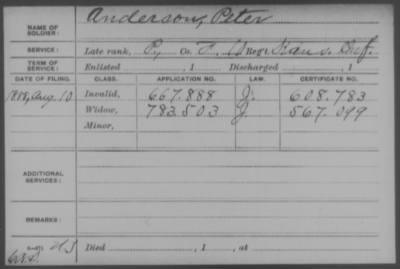 NAME OF SOLDIER: Anderson, Peter
SERVICE: Late rank, P, Co. C, 11 Reg't Kans. Inf.
TERM OF SERVICE: Enlisted , 1 Discharged , 1
DATE OF FILING. CLASS. APPLICATION NO. LAW. CERTIFICATE NO.
1888, Aug. 10 Invalid, 667.888 J. 608.783
Widow, 783.503 J. 567.099
Minor,
ADDITIONAL SERVICES:
REMARKS:
Died , 1 , at